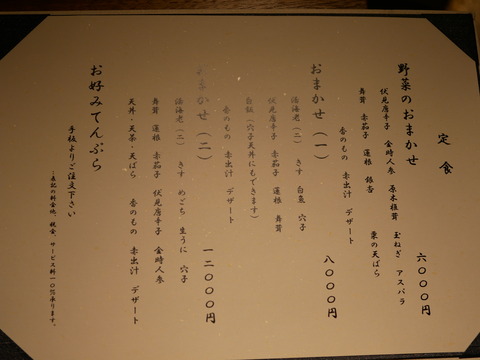 定食
野菜のおまかせ 六000円
伏見唐辛子 金時人参 原木椎茸 玉ねぎ アスパラ
舞茸 赤茄子 蓮根 銀杏 栗の天ぱら
香のもの 赤出汁 デザート
おまかせ（一） 八000円
活海老（二） きす 白魚 穴子
伏見唐辛子 赤茄子 蓮根 舞茸
白飯（穴子天丼にもできます）
香のもの 赤出汁 デザート
おまかせ（二） 一二000円
活海老（二） きす めごち 生うに 穴子
舞茸 蓮根 赤茄子 伏見唐辛子 金時人参
天丼・天茶・天ばら 香のもの 赤出汁 デザート
お好みてんぷら
手板よりご注文下さい
表記の料金他、税金、サービス料一0%承ります。